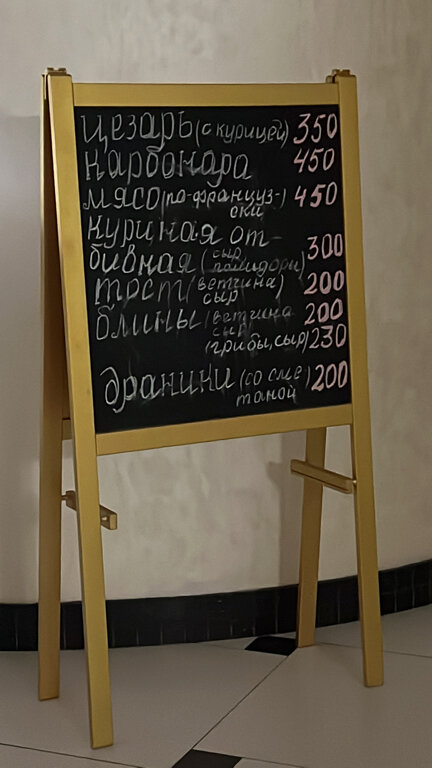 цезарь (с курицей) 350
карбонара 450
мясо (по-француз- 450
ски
куриная от-
бивная (сыр помидоры) 300
тост (ветчина) 200
сыр
блины (ветчина 200
сыр
(грибы, сыр) 230
драники (со сме 200
таной)